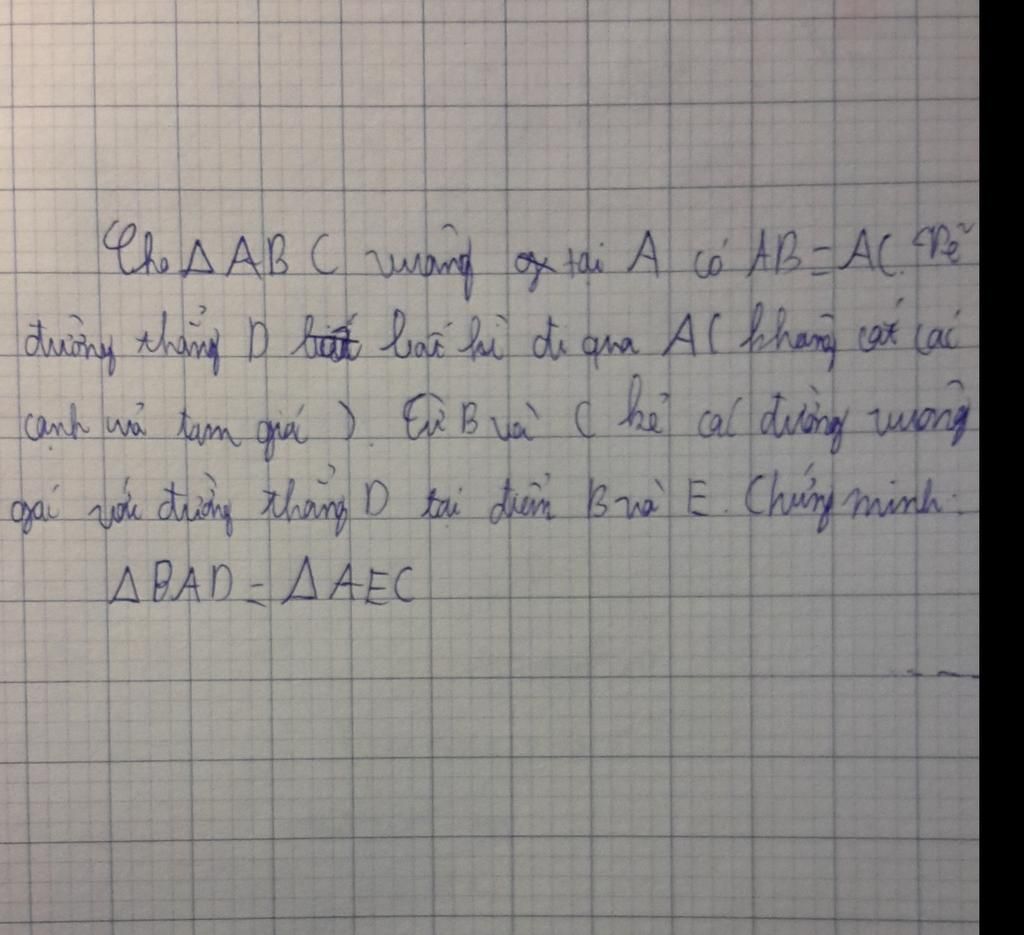 Cho Δ ABC vuông tại A có AB = AC. Vẽ
đường thẳng D bất kì đi qua A ( không cắt các
cạnh của tam giác ). Từ B và C kẻ các đường vuông
góc với đường thẳng D tại điểm B và E. Chứng minh:
Δ BAD = Δ AEC